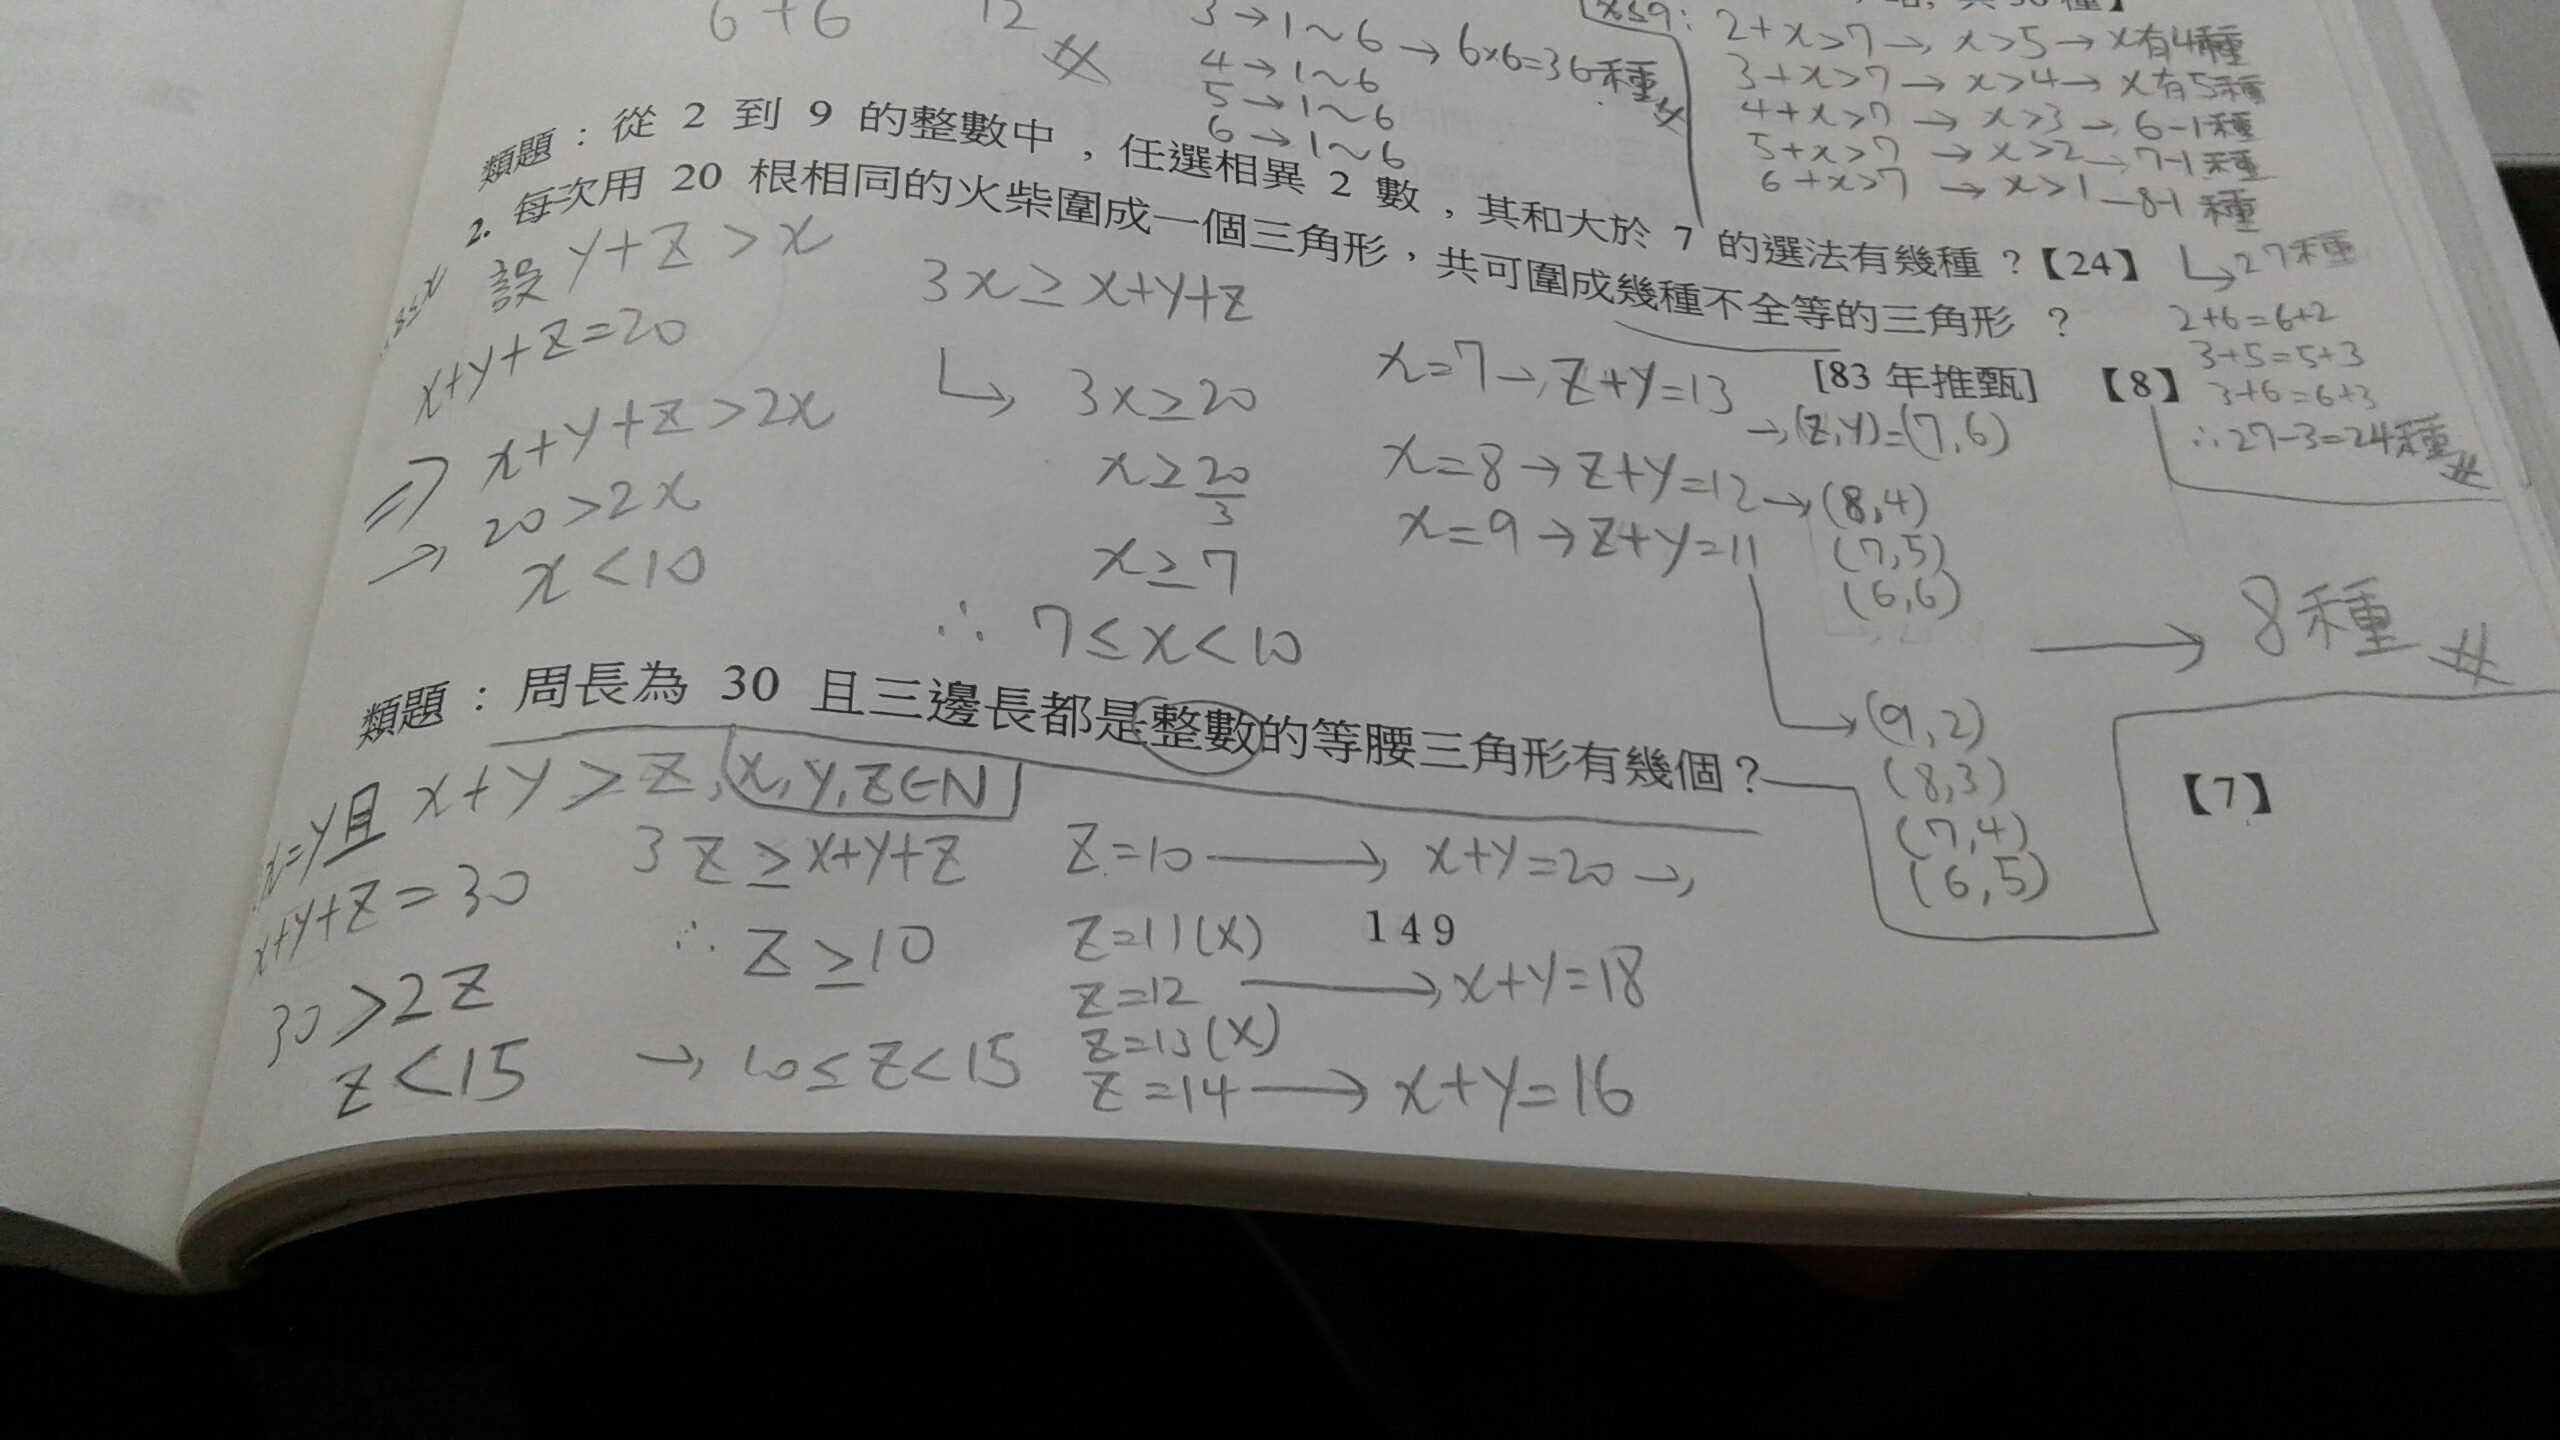 6+6 12
3→1~6
4→1~6 →6×6=36種
5→1~6
6→1~6
x≤9:
2+x>7→x>5→x有4種
3+x>7→x>4→x有5種
4+x>7→x>3→6-1種
5+x>7→x>2→7-1種
6+x>7→x>1—8-1種
↳27種
2+6=6+2
3+5=5+3
3+6=6+3
∴27-3=24種
類題：從 2 到 9 的整數中，任選相異 2 數，其和大於 7 的選法有幾種？【24】
2. 每次用 20 根相同的火柴圍成一個三角形，共可圍成幾種不全等的三角形 ？
[83 年推甄] 【8】
設 y+z>x
x+y+z=20
⇒ x+y+z>2x
→ 20>2x
x<10
3x≥x+y+z
↳ 3x≥20
x≥20/3
x≥7
∴ 7≤x<10
x=7→z+y=13
→(z,y)=(7,6)
x=8→z+y=12→(8,4)
(7,5)
(6,6)
x=9→z+y=11
→(9,2)
(8,3)
(7,4)
(6,5)
→ 8種
類題：周長為 30 且三邊長都是整數的等腰三角形有幾個？ 【7】
x=y且 x+y>z, x,y,z∈N
x+y+z=30
30>2z
z<15
3z≥x+y+z
∴ z≥10
→ 10≤z<15
z=10→x+y=20→
z=11(x)
z=12→x+y=18
z=13(x)
z=14→x+y=16
149